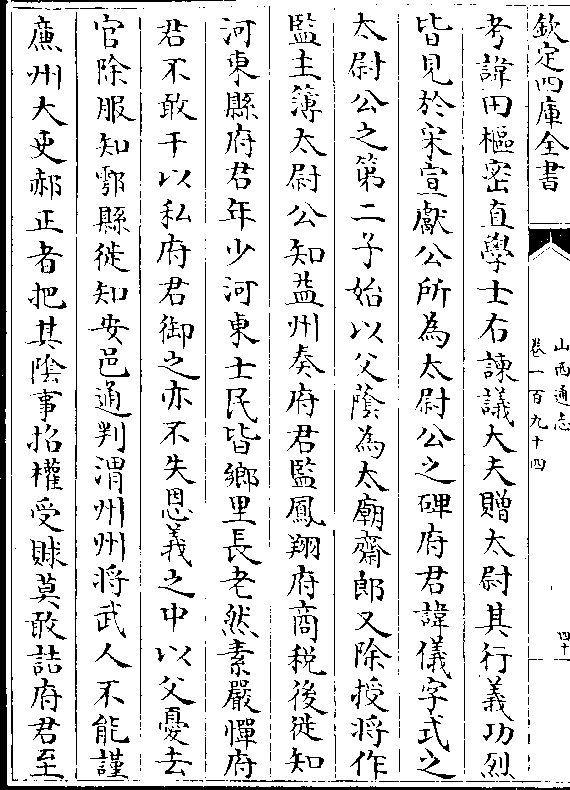 欽定四庫全書
山西通志
卷一百九十四
四十
考諱田樞密直學士右諫議大夫贈太尉其行義功烈
皆見於宋宣獻公所為太尉公之碑府君諱儀字式之
太尉公之第二子始以父蔭為太廟齋郎又除授將作
監主簿太尉公知益州奏府君監鳳翔府商税後徙知
河東縣府君年少河東士民皆鄉里長老然素嚴憚府
君不敢干以私府君御之亦不失恩義之中以父憂去
官除服知鄠縣徙知安邑通判渭州州將武人不能謹
廉州大吏郝正者把其陰事招權受賕莫敢詰府君至